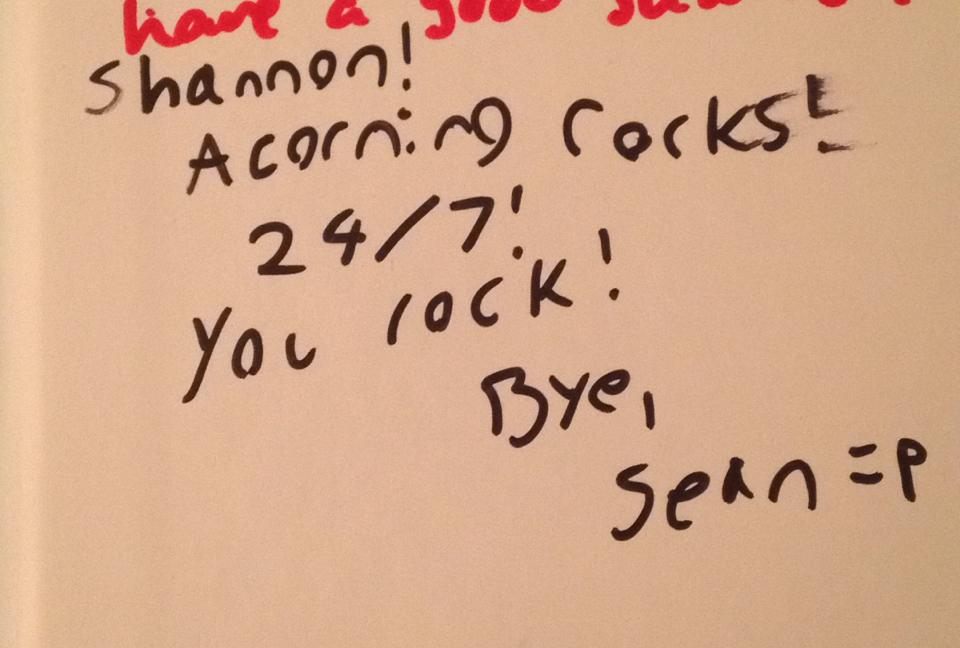 have a good
Shannon!
Acorning rocks!
24/7!
You rock!
Bye,
Sean =P